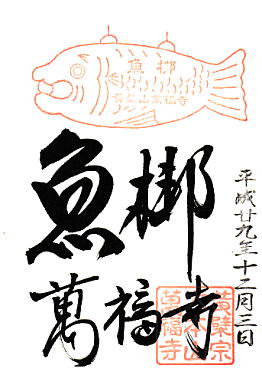 魚梆
黄檗山萬福寺
魚梆
萬福寺
平成廿九年十二月三日
黄檗宗
大本山
萬福寺